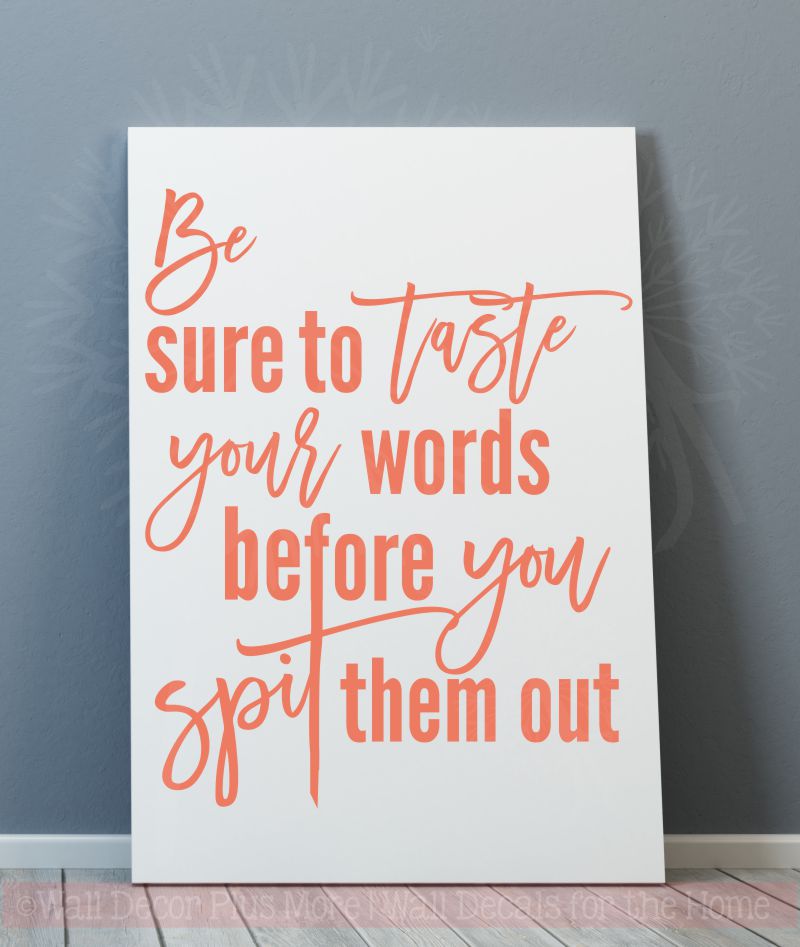 Be
sure to taste
your words
before you
spit them out
©Wall Decor Plus More | Wall Decals for the Home